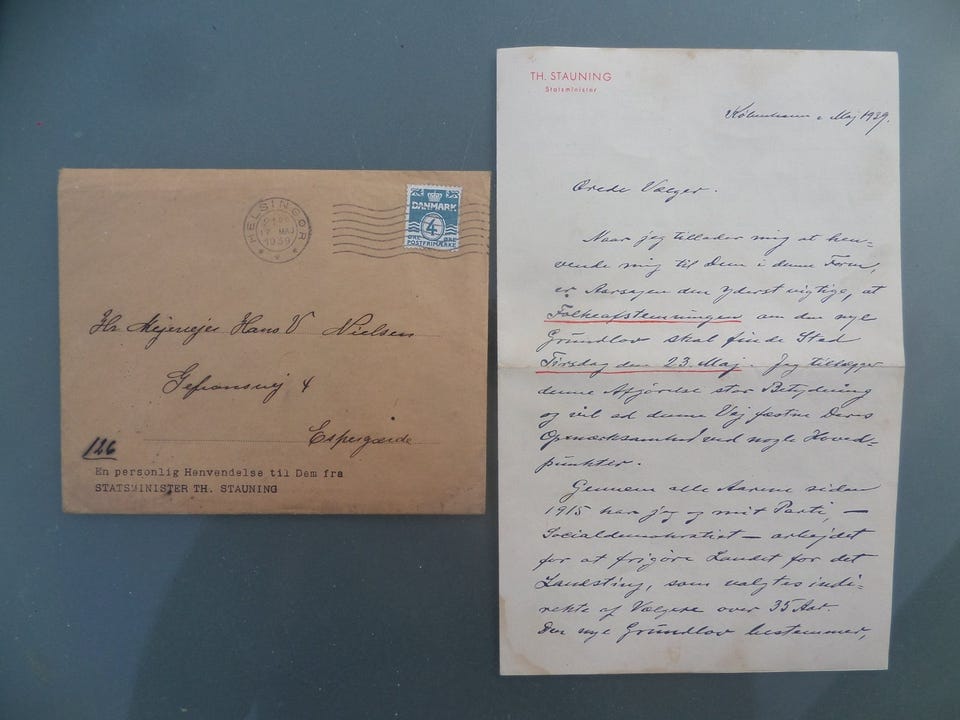 HELSINGØR
17 MAJ
1939
DANMARK
4
ØRE ØRE
POSTFRIMÆRKE
Hr. Mejeriejer Hans V Nielsen
Gefionsvej 4
Espergærde
126
En personlig Henvendelse til Dem fra
STATSMINISTER TH. STAUNING
TH. STAUNING
Statsminister
København i Maj 1939.
Ærede Vælger.
Naar jeg tillader mig at hen-
vende mig til Dem i denne Form,
er Aarsagen den yderst vigtige, at
Folkeafstemningen om den nye
Grundlov skal finde Sted
Tirsdag den 23. Maj. Jeg tillægger
denne Afgørelse stor Betydning
og vil ad denne Vej fæstne Deres
Opmærksomhed ved nogle Hoved-
punkter.
Gennem alle Aarene siden
1915 har jeg og mit Parti, —
Socialdemokratiet — arbejdet
for at frigøre Landet for det
Landsting, som valgtes indi-
rekte af Vælgere over 35 Aar.
Den nye Grundlov bestemmer,